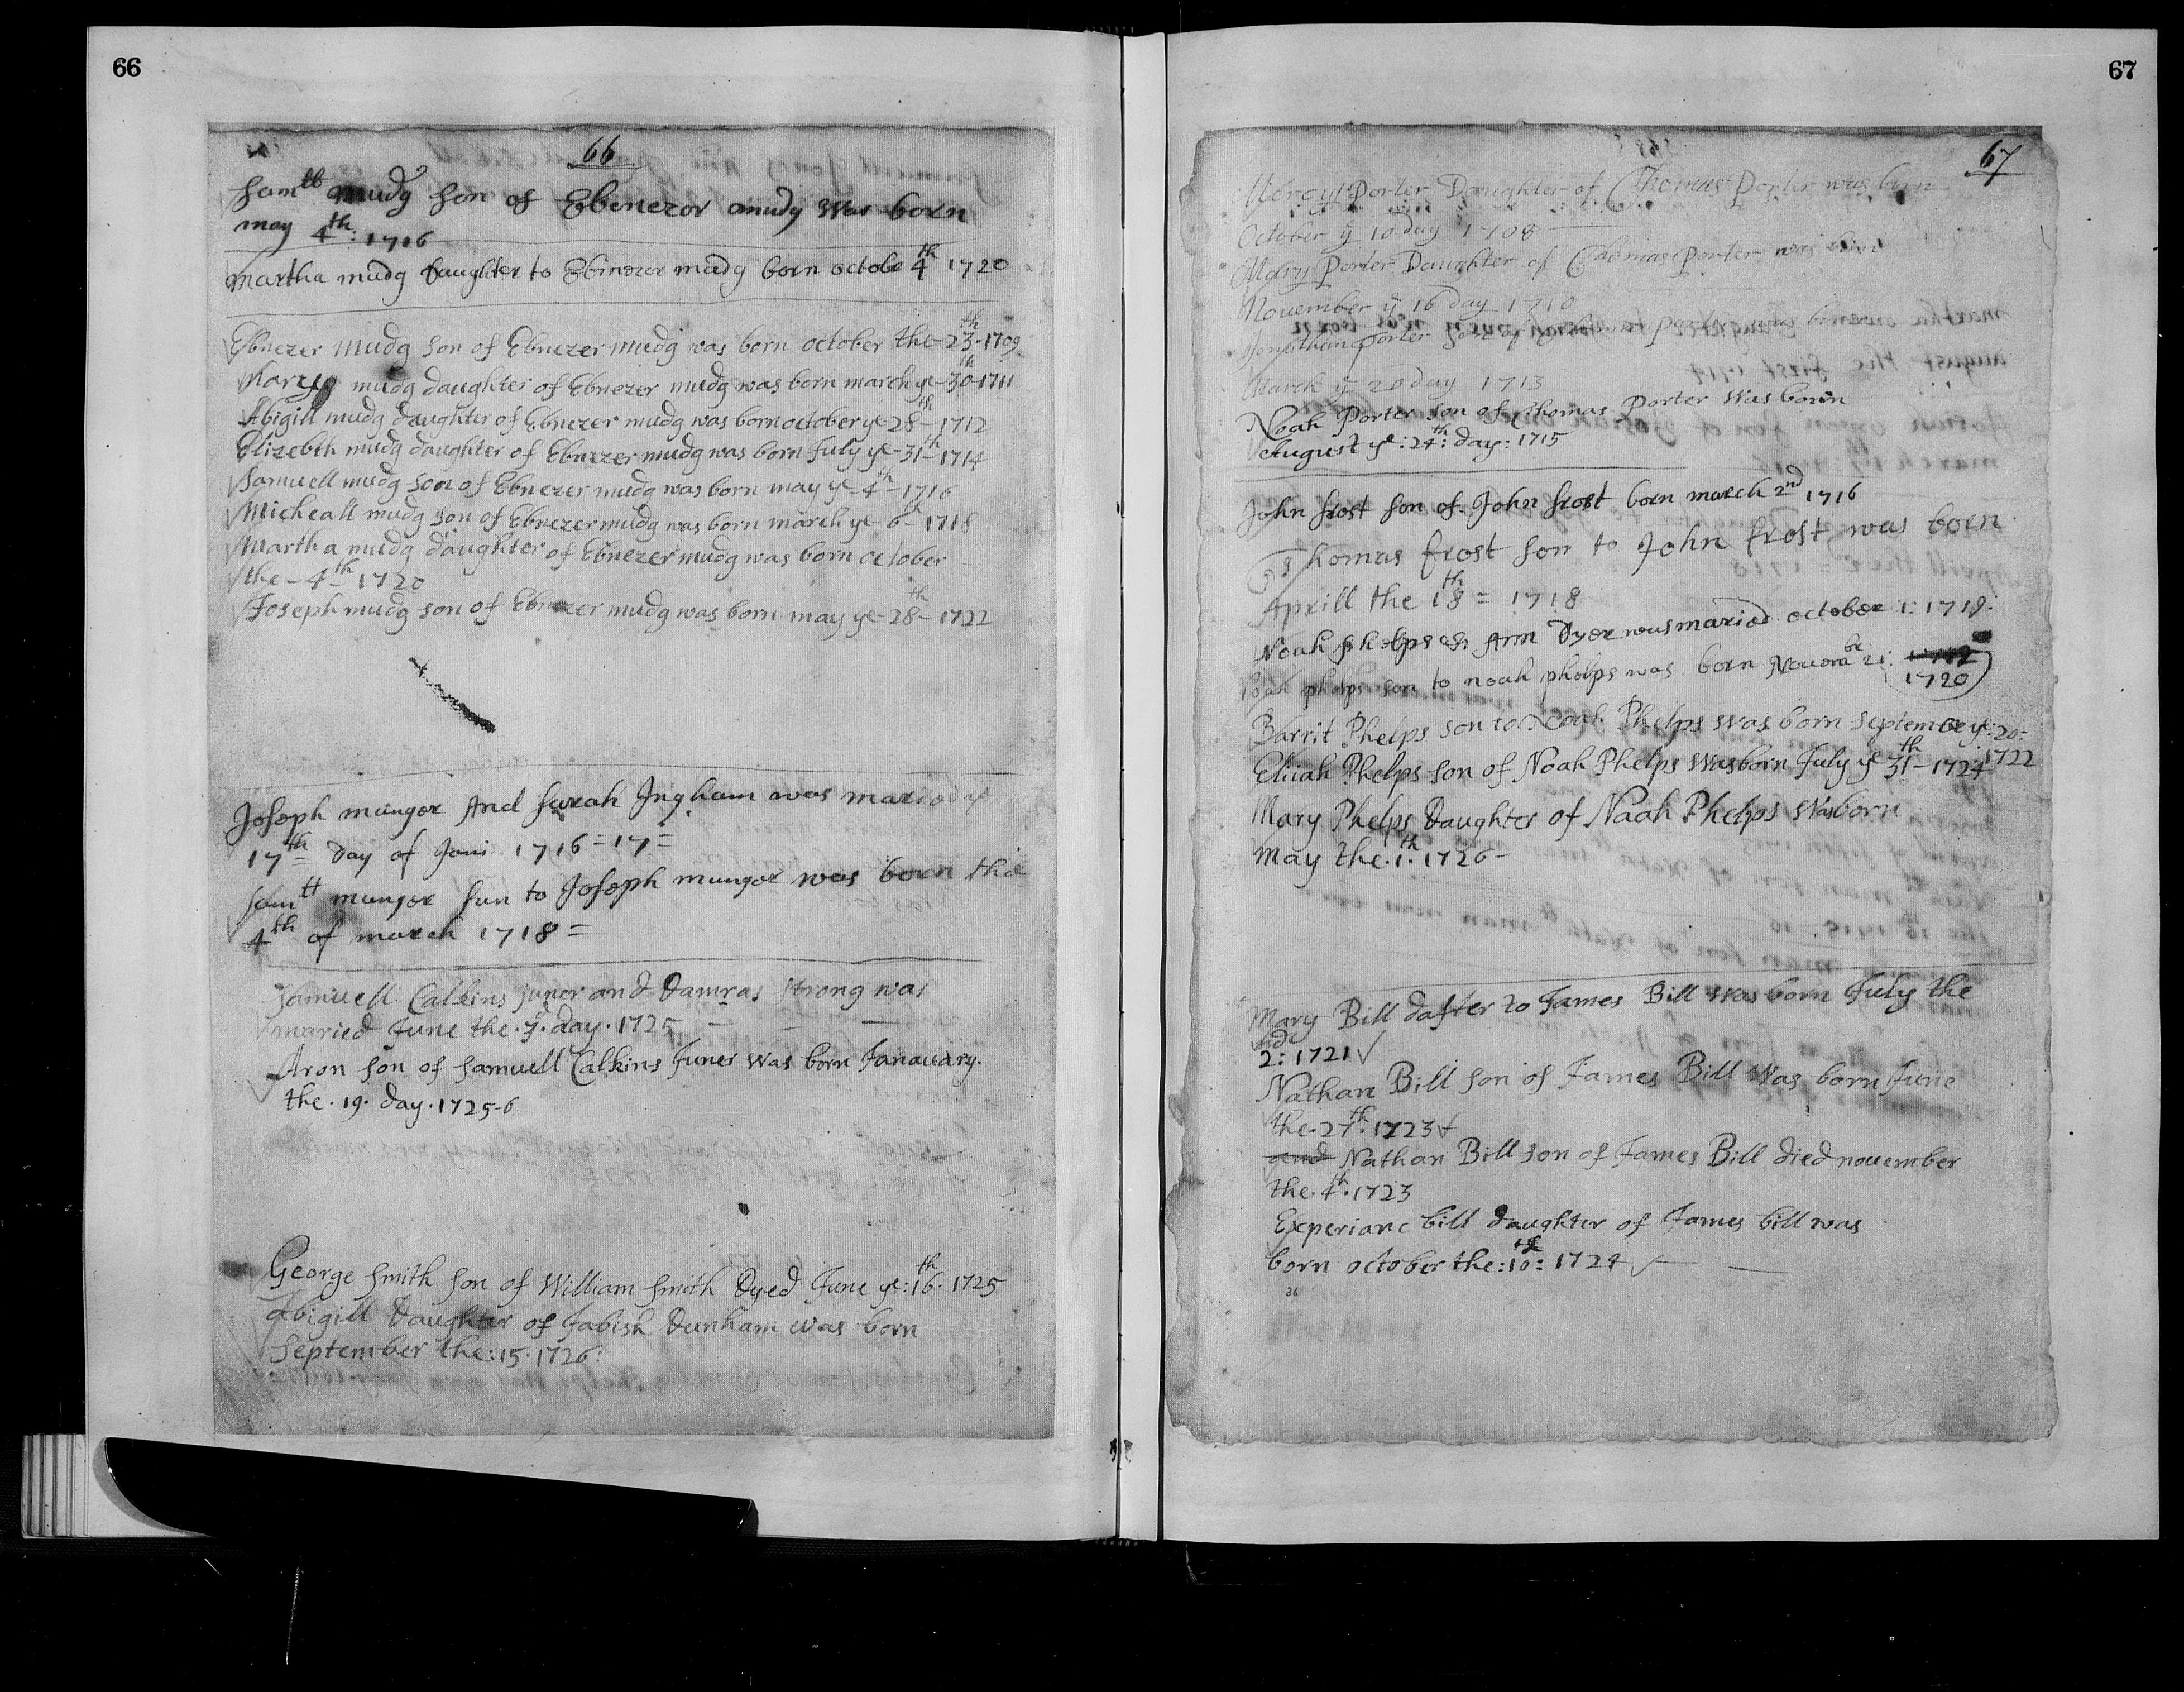 66
66
Samll mudg son of Ebenezor mudg was born
may 4th: 1716
martha mudg daughter to Ebinezor mudg born octobe 4th 1720
Ebnezer mudg son of Ebnezer mudg was born october the 23th 1709
Mary mudg daughter of Ebnezer mudg was born march ye 30th 1711
Abigill mudg daughter of Ebnezer mudg was born october ye 28th 1712
Elizebth mudg daughter of Ebnezer mudg was born July ye 31th 1714
Samuell mudg son of Ebnezer mudg was born may ye 4th 1716
Micheall mudg son of Ebnezer mudg was born march ye 6th 1718
Martha mudg daughter of Ebnezer mudg was born october
the 4th 1720
Joseph mudg son of Ebnezer mudg was born may ye 28th 1722
Joseph munger And Sarah Ingham was maried ye
17th = day of Jani 1716=17=
Samll munger sun to Joseph munger was born the
4th of march 1718=
Samuell Calkins juner and damras strong was
maried June the . day . 1725
Aron son of samuell Calkins Juner was born Janauary.
the . 19 . day . 1725-6
George smith son of William smith dyed June ye: 16th. 1725
Abigill daughter of Jabish dunham was born
September the: 15. 1726:
67
67
Mercy Porter Daughter of Thomas Porter was born
October ye 10 day 1708
Mary Porter Daughter of Thomas Porter was born
November ye 16 day 1710
Jonathan Porter son of Thomas Porter was born
March ye 20 day 1713
Noah Porter son of Thomas Porter was born
August ye: 24th: day: 1715
John frost son of John frost born march 2nd 1716
Thomas frost son to John frost was born
Aprill the 18th = 1718
Noah phelps & Ann Dyer was maried october 1: 1719:
Noah phelps son to noah phelps was born Novembr 21:
1720
Barrit Phelps son to Noah Phelps was born septembe ye: 20:
1722
Elijah Phelps son of Noah Phelps was born July ye 31th - 1724
Mary Phelps daughter of Noah Phelps was born
may the . 1th . 1726 -
Mary Bill dafter to James Bill was born July the
2nd: 1721
Nathan Bill son of James Bill was born June
the . 27th . 1723
and Nathan Bill son of James Bill died november
the . 4th . 1723
Experianc bill daughter of James bill was
born october the: 10th: 1724
36